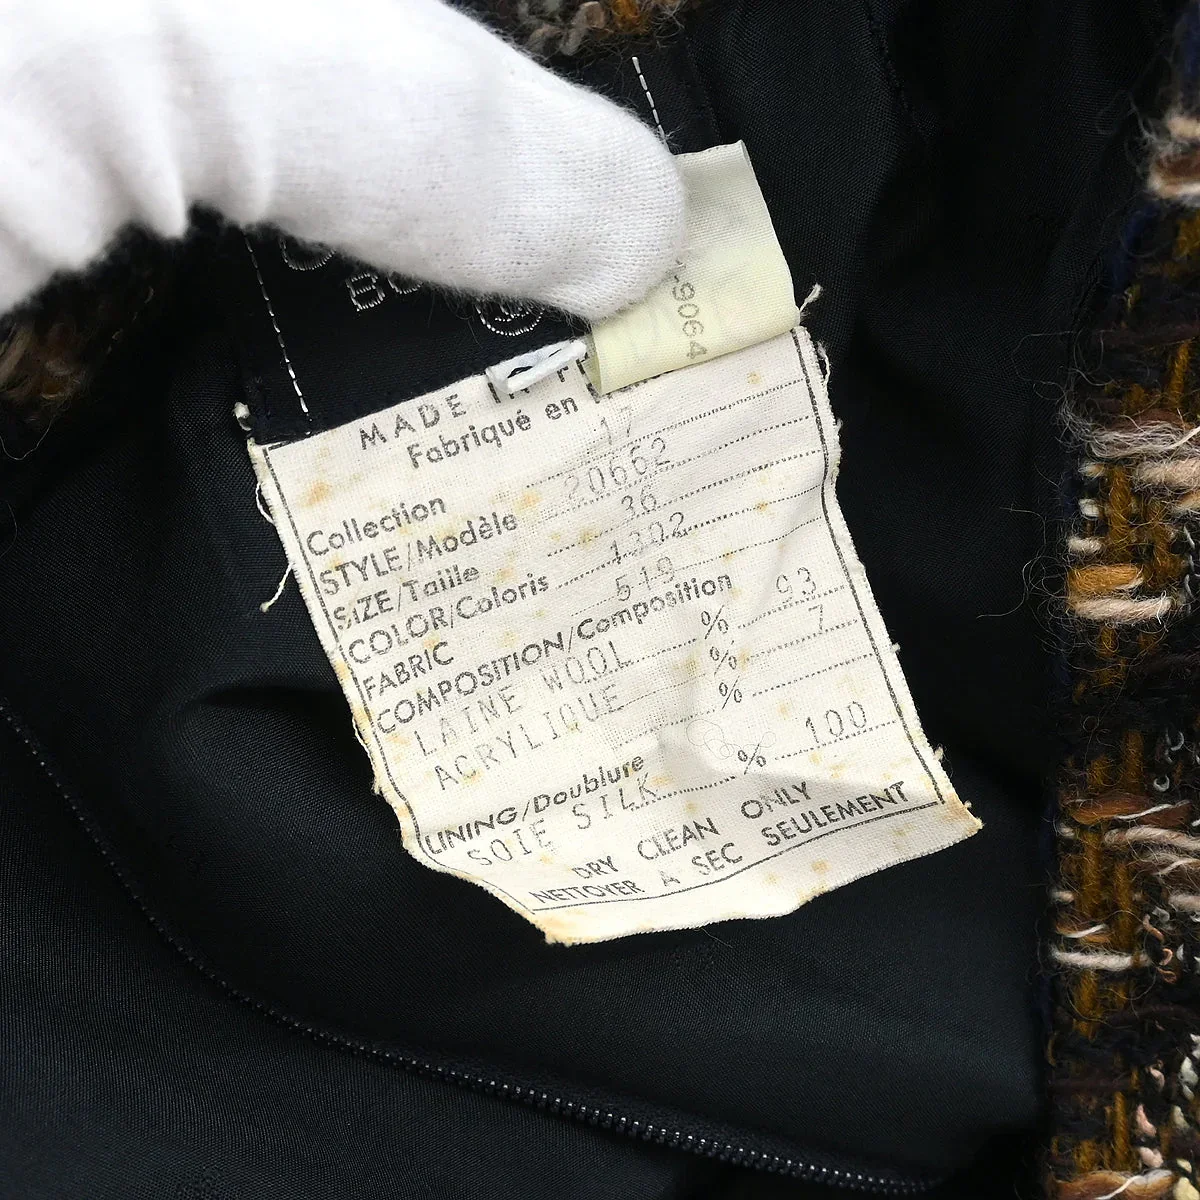 9064
MADE
Fabriqué en
Collection 17
STYLE/Modèle 20662
SIZE/Taille 36
COLOR/Coloris 1302
FABRIC 519
COMPOSITION/Composition
LAINE WOOL % 93
ACRYLIQUE % 7
%
LINING/Doublure
SOIE SILK % 100
DRY CLEAN ONLY
NETTOYER A SEC SEULEMENT